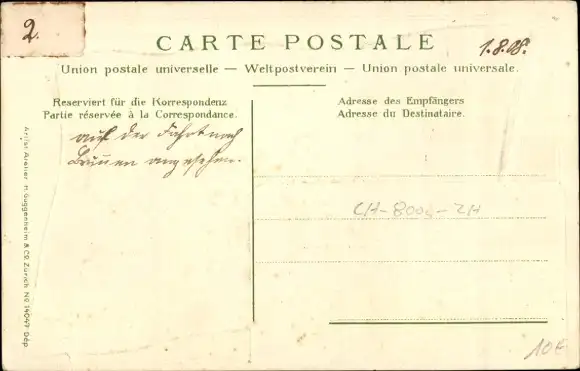 2.
CARTE POSTALE
1.8.08.
Union postale universelle — Weltpostverein — Union postale universale.
Reserviert für die Korrespondenz
Partie réservée à la Correspondance.
Adresse des Empfängers
Adresse du Destinataire.
auf der Fahrt nach
Brunnen angesehen.
CH-800-ZH
Artist. Atelier H. Guggenheim & Co. Zürich No 14047 Dép.
10€